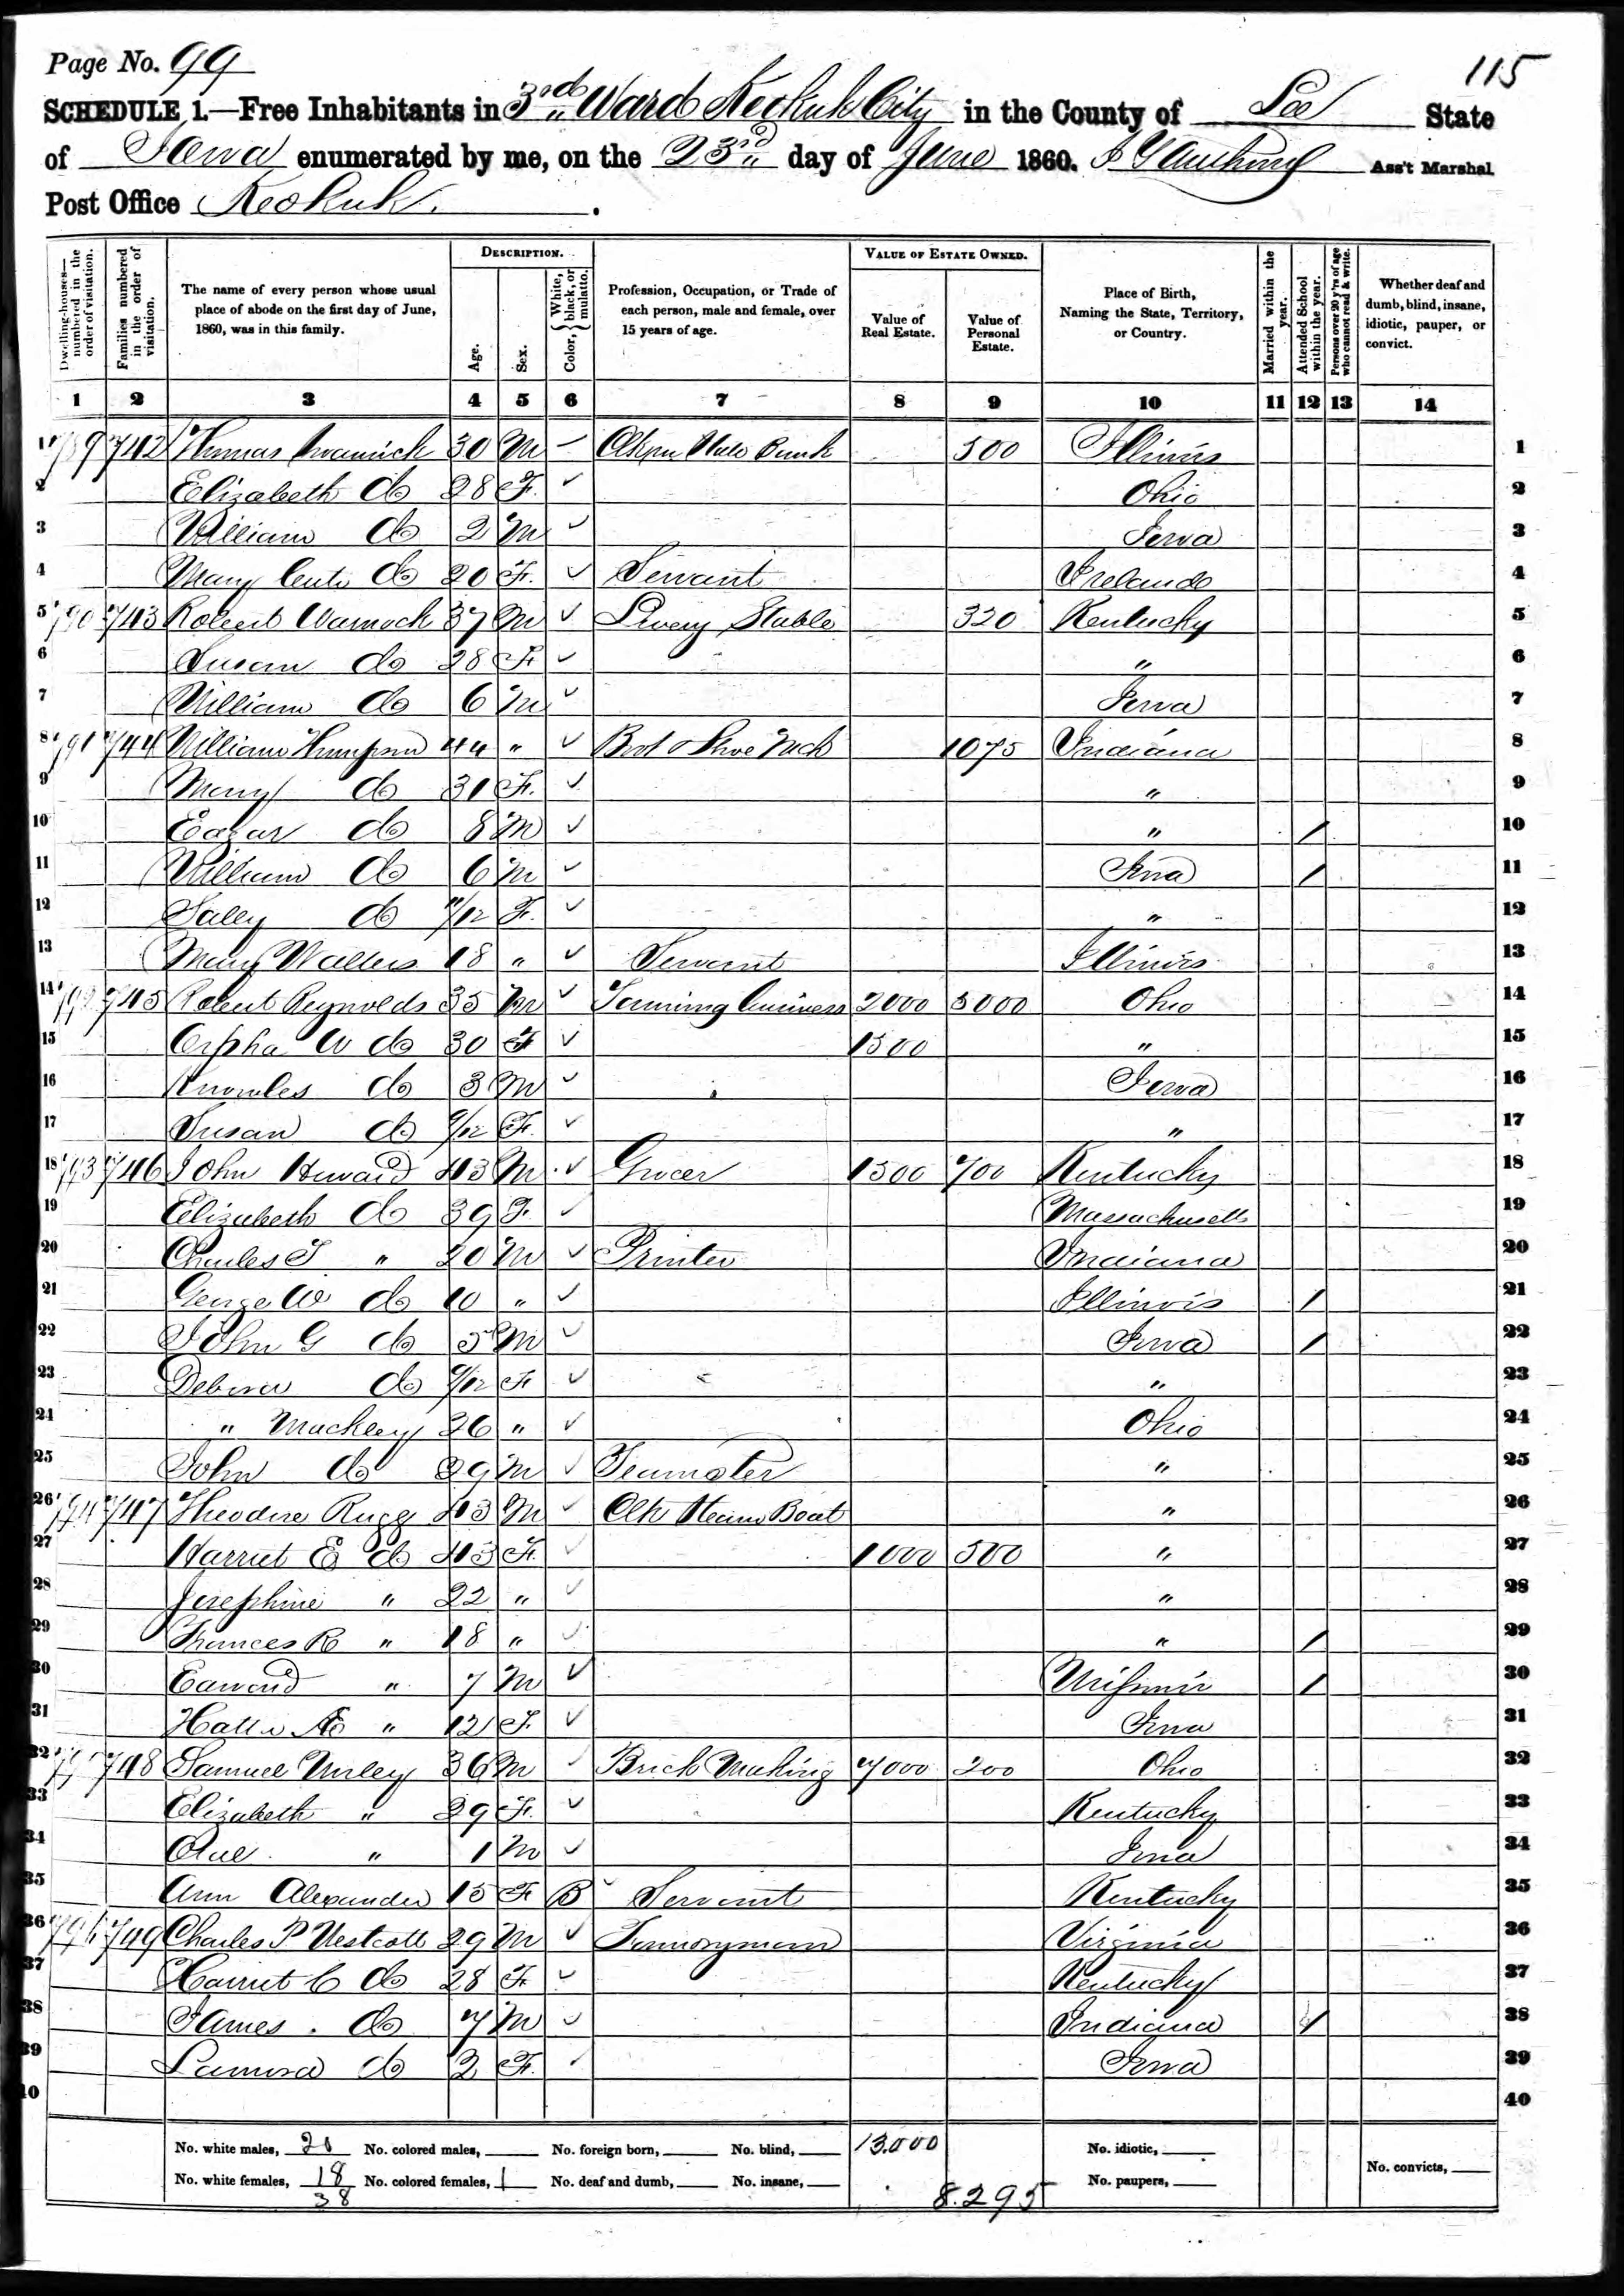 Page No. 99
115
SCHEDULE 1.—Free Inhabitants in 3rd Ward Keokuk City in the County of Lee State
of Iowa enumerated by me, on the 23rd day of June 1860. Ass't Marshal
Post Office Keokuk.
DESCRIPTION. VALUE OF ESTATE OWNED.
Dwelling-houses—numbered in the order of visitation.
Families numbered in the order of visitation.
The name of every person whose usual place of abode on the first day of June, 1860, was in this family.
Age.
Sex.
Color, White, black, or mulatto.
Profession, Occupation, or Trade of each person, male and female, over 15 years of age.
Value of Real Estate.
Value of Personal Estate.
Place of Birth, Naming the State, Territory, or Country.
Married within the year.
Attended School within the year.
Persons over 20 y'rs of age who cannot read & write.
Whether deaf and dumb, blind, insane, idiotic, pauper, or convict.
1 2 3 4 5 6 7 8 9 10 11 12 13 14
1 789 742 Thomas 30 M 500 Illinois 1
2 Elizabeth do 28 F. Ohio 2
3 William do 2 M Iowa 3
4 Mary do 20 F. Servant Ireland 4
5 790 743 Robert Warnock 37 M Livery Stable 320 Kentucky 5
6 Susan do 28 F " 6
7 William do 6 M Iowa 7
8 791 744 William 44 " Boot & Shoe 1075 Indiana 8
9 Mary do 31 F. " 9
10 Edgar do 8 M " / 10
11 William do 6 M Iowa / 11
12 Saley do 11/12 F. " 12
13 Mary Walters 18 " Servant Illinois 13
14 792 745 Robert Reynolds 35 M business 2000 5000 Ohio 14
15 Orpha W do 30 F 1500 " 15
16 Knowles do 3 M Iowa 16
17 Susan do 9/12 F. " 17
18 793 746 John Howard 43 M Grocer 1500 700 Kentucky 18
19 Elizabeth do 39 F. Massachusetts 19
20 Charles T " 20 M Printer Indiana 20
21 George W do 10 " Illinois / 21
22 John G do 5 M Iowa / 22
23 Debora do 9/12 F " 23
24 " Mackley 26 " Ohio 24
25 John do 29 M Teamster " 25
26 794 747 Theodore Rugg 43 M Clk Steam Boat " 26
27 Harriet E do 43 F. 1000 500 " 27
28 Josephine " 22 " " 28
29 Frances R " 18 " " / 29
30 Edward " 7 M Missouri / 30
31 Hattie " 12 F. Iowa 31
32 795 748 Samuel 36 M Brick Making 7000 200 Ohio 32
33 Elizabeth " 29 F. Kentucky 33
34 " 1 M Iowa 34
35 Ann Alexander 15 F B Servant Kentucky 35
36 796 749 Charles P Westcott 29 M Virginia 36
37 Harriet C do 28 F Kentucky 37
38 James . do 7 M Indiana / 38
39 do 2 F. Iowa 39
40 40
No. white males, 20 No. colored males, No. foreign born, No. blind, 13.000 No. idiotic,
No. white females, 18 No. colored females, 1 No. deaf and dumb, No. insane, No. paupers, No. convicts,
38 8.295